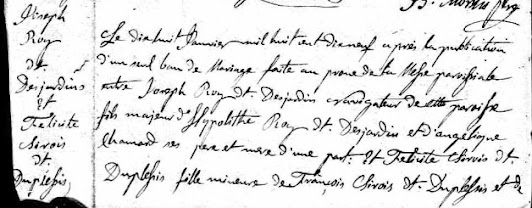 Joseph
Roy
dt
Desjardins
et
Felicité
Sirois
dt.
Duplessis
Le dixhuit Janvier mil huit cent dixneuf après la publication
d'un seul ban de Mariage faite au prone de la Messe paroissiale
entre Joseph Roy dt. Desjardin navigateur de cette paroisse
fils majeur d'Hypolithe Roy dt. Desjardin et d'angelique
Chamard ses pere et mere d'une part. Et Felicité Sirois dt.
Duplessis fille mineure de François Sirois dt. Duplessis et de